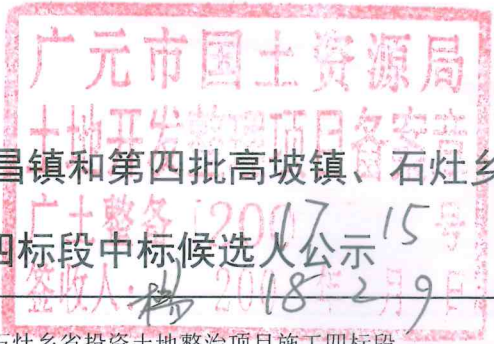 广元市国土资源局
土地开发整理项目备案章
昌镇和第四批高坡镇、石灶乡
广土整备[2017]15号
四标段中标候选人公示
签收人: 2018年2月9日
石灶乡省投资土地整治项目施工四标段